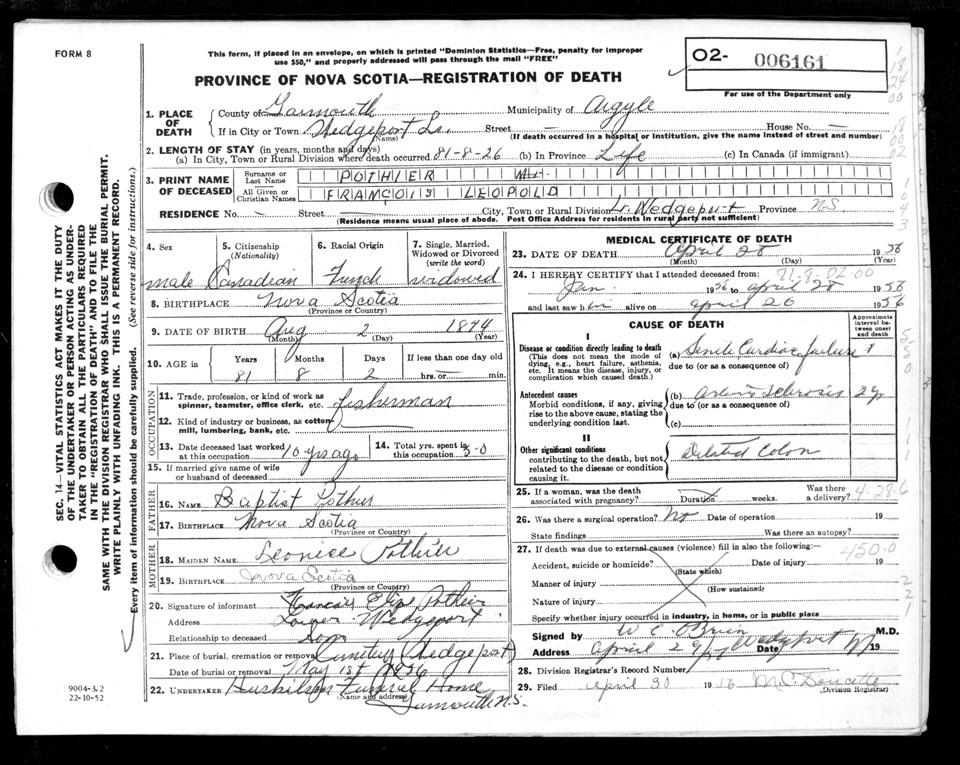 FORM 8
This form, if placed in an envelope, on which is printed "Dominion Statistics—Free, penalty for improper
use $50," and properly addressed will pass through the mail "FREE"
PROVINCE OF NOVA SCOTIA—REGISTRATION OF DEATH
O2- 006161
For use of the Department only
1. PLACE OF DEATH County of Yarmouth Municipality of Argyle
If in City or Town Wedgeport Lr. Street House No. —
(Name) (If death occurred in a hospital or institution, give the name instead of street and number)
2. LENGTH OF STAY (in years, months and days)
(a) In City, Town or Rural Division where death occurred 81-8-26 (b) In Province Life (c) In Canada (if immigrant)
3. PRINT NAME OF DECEASED Surname or Last Name POTHIER
All Given or Christian Names FRANCOIS LEOPOLD
RESIDENCE No. — Street City, Town or Rural Division Lr. Wedgeport Province NS
(Residence means usual place of abode. Post Office Address for residents in rural parts not sufficient)
4. Sex 5. Citizenship (Nationality) 6. Racial Origin 7. Single, Married, Widowed or Divorced (write the word)
male Canadian French widowed
8. BIRTHPLACE Nova Scotia
(Province or Country)
9. DATE OF BIRTH Aug 2 1874
(Month) (Day) (Year)
10. AGE in Years Months Days If less than one day old
81 8 2 hrs. or min.
OCCUPATION
11. Trade, profession, or kind of work as spinner, teamster, office clerk, etc. fisherman
12. Kind of industry or business, as cotton mill, lumbering, bank, etc.
13. Date deceased last worked at this occupation 10 yrs ago 14. Total yrs. spent in this occupation 50
15. If married give name of wife or husband of deceased
FATHER
16. NAME Baptist Pothier
17. BIRTHPLACE Nova Scotia
(Province or Country)
MOTHER
18. MAIDEN NAME Leonice Pothier
19. BIRTHPLACE Nova Scotia
(Province or Country)
20. Signature of informant Francois Pothier
Address Lower Wedgeport
Relationship to deceased son
21. Place of burial, cremation or removal Cemetery Wedgeport
Date of burial or removal May 1st 1956
22. UNDERTAKER Funeral Home
(Name and address) Yarmouth N.S.
MEDICAL CERTIFICATE OF DEATH
23. DATE OF DEATH April 28 1956
(Month) (Day) (Year)
24. I HEREBY CERTIFY that I attended deceased from: 81-8-02-00
Jan. 1956 to april 28 1956
and last saw him alive on april 26 1956
CAUSE OF DEATH
Approximate interval between onset and death
I
Disease or condition directly leading to death (a) Senile Cardiac failure
(This does not mean the mode of dying, e.g., heart failure, asthenia, etc. It means the disease, injury, or complication which caused death.)
due to (or as a consequence of)
Antecedent causes (b) Arterio Sclerosis
Morbid conditions, if any, giving rise to the above cause, stating the underlying condition last.
due to (or as a consequence of)
(c)
II
Other significant conditions contributing to the death, but not related to the disease or condition causing it. Dilated Colon
25. If a woman, was the death associated with pregnancy? Duration weeks. Was there a delivery? 4-28-6
26. Was there a surgical operation? No Date of operation 19
State findings Was there an autopsy?
27. If death was due to external causes (violence) fill in also the following:— 450.0
Accident, suicide or homicide? Date of injury 19
(State which)
Manner of injury
(How sustained)
Nature of injury
Specify whether injury occurred in industry, in home, or in public place
Signed by W C O'Brien M.D.
Address Wedgeport NS Date April 29/56 19
28. Division Registrar's Record Number
29. Filed april 30 1956 M.C. Doucette
(Division Registrar)
SEC. 14—VITAL STATISTICS ACT MAKES IT THE DUTY
OF THE UNDERTAKER OR PERSON ACTING AS UNDER-
TAKER TO OBTAIN ALL THE PARTICULARS REQUIRED
IN THE "REGISTRATION OF DEATH" AND TO FILE THE
SAME WITH THE DIVISION REGISTRAR WHO SHALL ISSUE THE BURIAL PERMIT.
WRITE PLAINLY WITH UNFADING INK. THIS IS A PERMANENT RECORD.
Every item of information should be carefully supplied. (See reverse side for instructions.)
9004-3.2
22-10-52